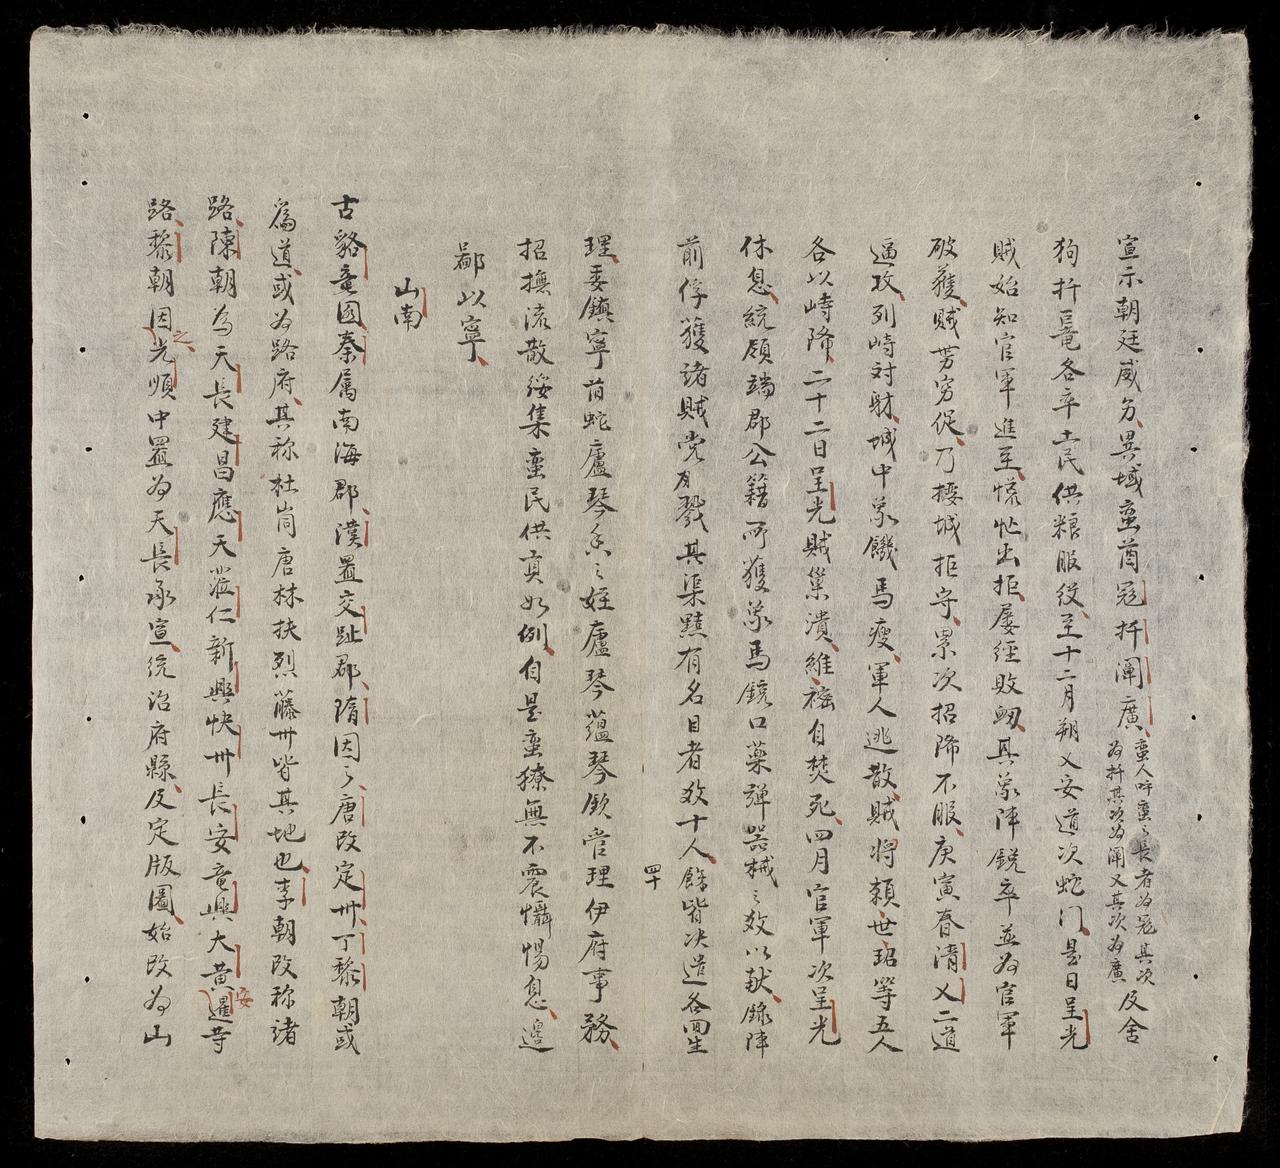 宣示朝廷威分異域蛮酋冦扞闡廣蛮人呼蛮之長者為冦其次為扞其次為闡又其次為廣及舍
狗扞巨竜各卒土民供粮服役至十二月朔乂安道次蛇门是日呈光
賊始知官軍進至慌忙出拒屡經敗衂其象陣鋭卒並為官軍
破獲賊势穷促乃摟城拒守累次招降不服庚寅春清乂二道
逼攻列峙对射城中象饑馬瘦軍人逃散賊将頼世珆等五人
各以峙降二十二日呈光賊巢潰維𥙿自焚死四月官軍次呈光
休息統領端郡公籍所獲象馬銃口藥弹器械之数以献録陣
前俘獲诸賊党月戮其渠黠有名目者数十人餘皆决遣各回生
四十
理委鎮寧酋蛇廬琴之姪廬琴蕴琴欽管理伊府事務
招撫流散綏集蛮民供貢如例自是蛮獠無不震慴惕息邊
鄙以寧
山南
古貉竜國秦属南海郡漢置交趾郡隋因之唐改定卅丁黎朝或
為道或為路府其称杜峝唐林扶烈藤卅皆其地也李朝改称诸
路陳朝為天長建昌應天蒞仁新興快卅長安竜興大黄暹等安
路黎朝因之光順中置為天長承宣统治府縣及定版圖始改為山